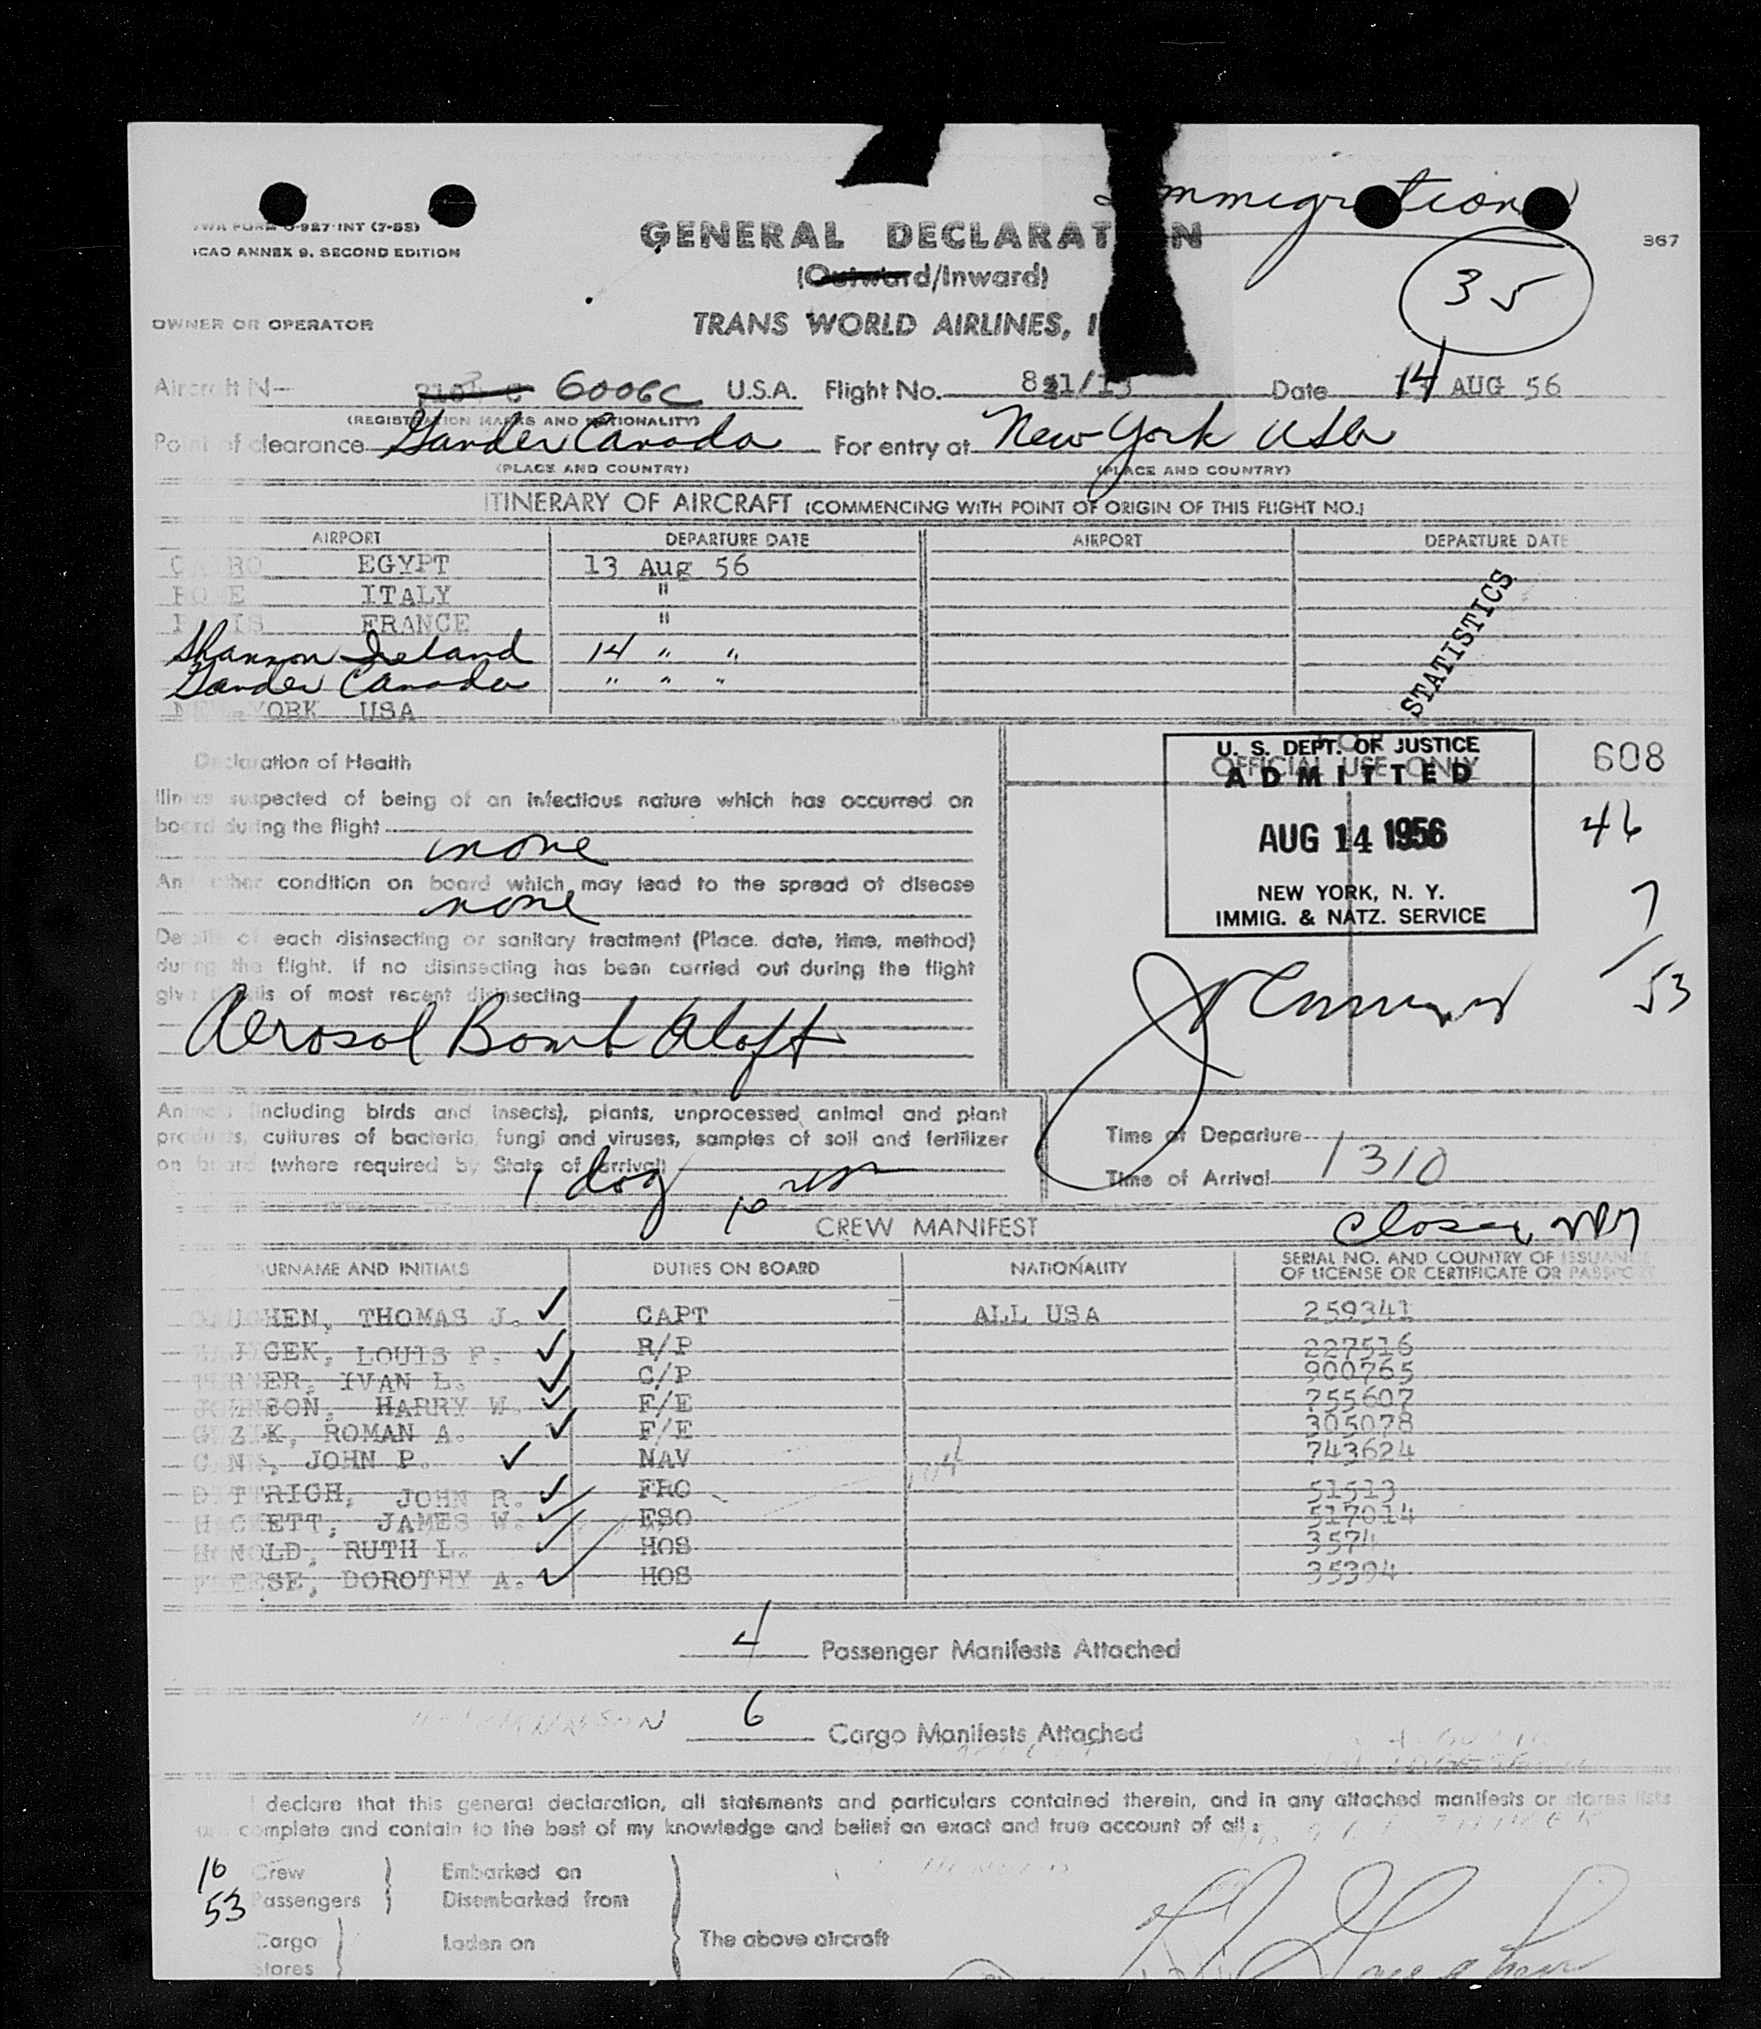 Immigration
TWA FORM 0-927-INT (7-55)
ICAO ANNEX 9, SECOND EDITION
GENERAL DECLARATION
367
(Outward/Inward)
35
OWNER OR OPERATOR
TRANS WORLD AIRLINES, I
Aircraft N- 6006C U.S.A. Flight No. 8 1/13 Date 14 AUG 56
(REGISTRATION MARKS AND NATIONALITY)
Point of clearance Gander Canada For entry at New York USA
(PLACE AND COUNTRY) (PLACE AND COUNTRY)
ITINERARY OF AIRCRAFT (COMMENCING WITH POINT OF ORIGIN OF THIS FLIGHT NO.)
AIRPORT DEPARTURE DATE AIRPORT DEPARTURE DATE
CAIRO EGYPT 13 Aug 56
ROME ITALY "
PARIS FRANCE "
Shannon Ireland 14 " "
Gander Canada " " "
NEW YORK USA
STATISTICS
Declaration of Health
Illness suspected of being of an infectious nature which has occurred on
board during the flight
none
Any other condition on board which may lead to the spread of disease
none
Details of each disinsecting or sanitary treatment (Place, date, time, method)
during the flight. If no disinsecting has been carried out during the flight
give details of most recent disinsecting
Aerosol Bomb Aloft
FOR
OFFICIAL USE ONLY
U. S. DEPT. OF JUSTICE
ADMITTED
AUG 14 1956
NEW YORK, N. Y.
IMMIG. & NATZ. SERVICE
608
46
7
53
Animals (including birds and insects), plants, unprocessed animal and plant
products, cultures of bacteria, fungi and viruses, samples of soil and fertilizer
on board (where required by State of arrival)
1 dog
Time of Departure
Time of Arrival 1310
CREW MANIFEST
SURNAME AND INITIALS DUTIES ON BOARD NATIONALITY SERIAL NO. AND COUNTRY OF ISSUANCE
OF LICENSE OR CERTIFICATE OR PASSPORT
HEN, THOMAS J. CAPT ALL USA 259341
CEK, LOUIS F. R/P 227516
ER, IVAN L. C/P 900765
JOHNSON, HARRY W. F/E 755607
ZIK, ROMAN A. F/E 305078
JOHN P. NAV 743624
DITTRICH, JOHN R. FRO 51513
HACKETT, JAMES W. FSO 517014
HONOLD, RUTH L. HOS 3574
FREESE, DOROTHY A. HOS 35394
4 Passenger Manifests Attached
6 Cargo Manifests Attached
I declare that this general declaration, all statements and particulars contained therein, and in any attached manifests or stores lists
are complete and contain to the best of my knowledge and belief an exact and true account of all:
10 Crew Embarked on
53 Passengers Disembarked from
Cargo Laden on The above aircraft
Stores